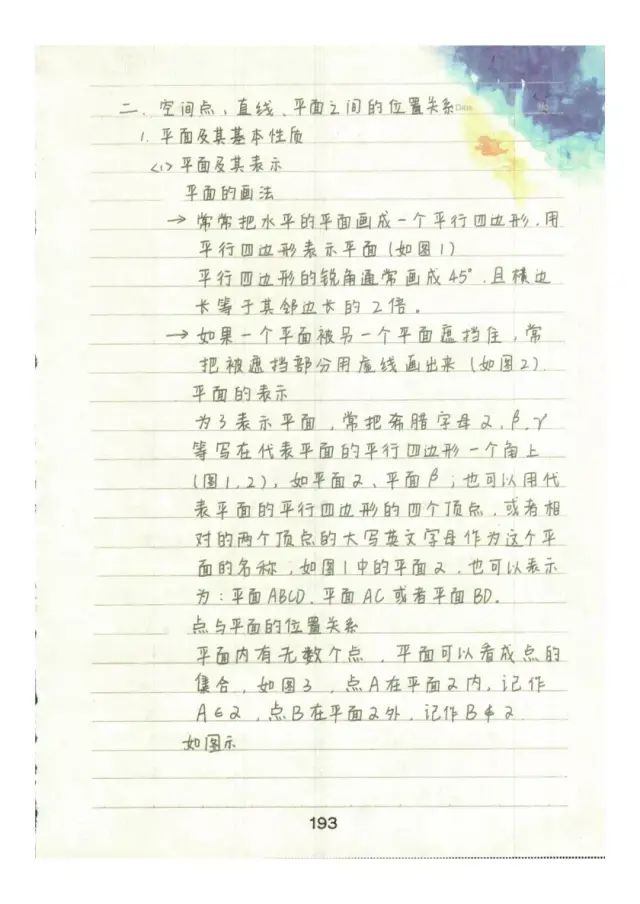 二、空间点、直线、平面之间的位置关系
Date No
1. 平面及其基本性质
<1> 平面及其表示
平面的画法
→ 常常把水平的平面画成一个平行四边形,用
平行四边形表示平面(如图1)
平行四边形的锐角通常画成45°,且横边
长等于其邻边长的2倍。
→ 如果一个平面被另一个平面遮挡住,常
把被遮挡部分用虚线画出来(如图2).
平面的表示
为了表示平面,常把希腊字母α、β、γ
等写在代表平面的平行四边形一个角上
(图1,2),如平面α、平面β;也可以用代
表平面的平行四边形的四个顶点,或者相
对的两个顶点的大写英文字母作为这个平
面的名称,如图1中的平面α,也可以表示
为:平面ABCD、平面AC或者平面BD。
点与平面的位置关系
平面内有无数个点,平面可以看成点的
集合,如图3,点A在平面α内,记作
A∈α,点B在平面α外,记作B∉α.
如图示
193